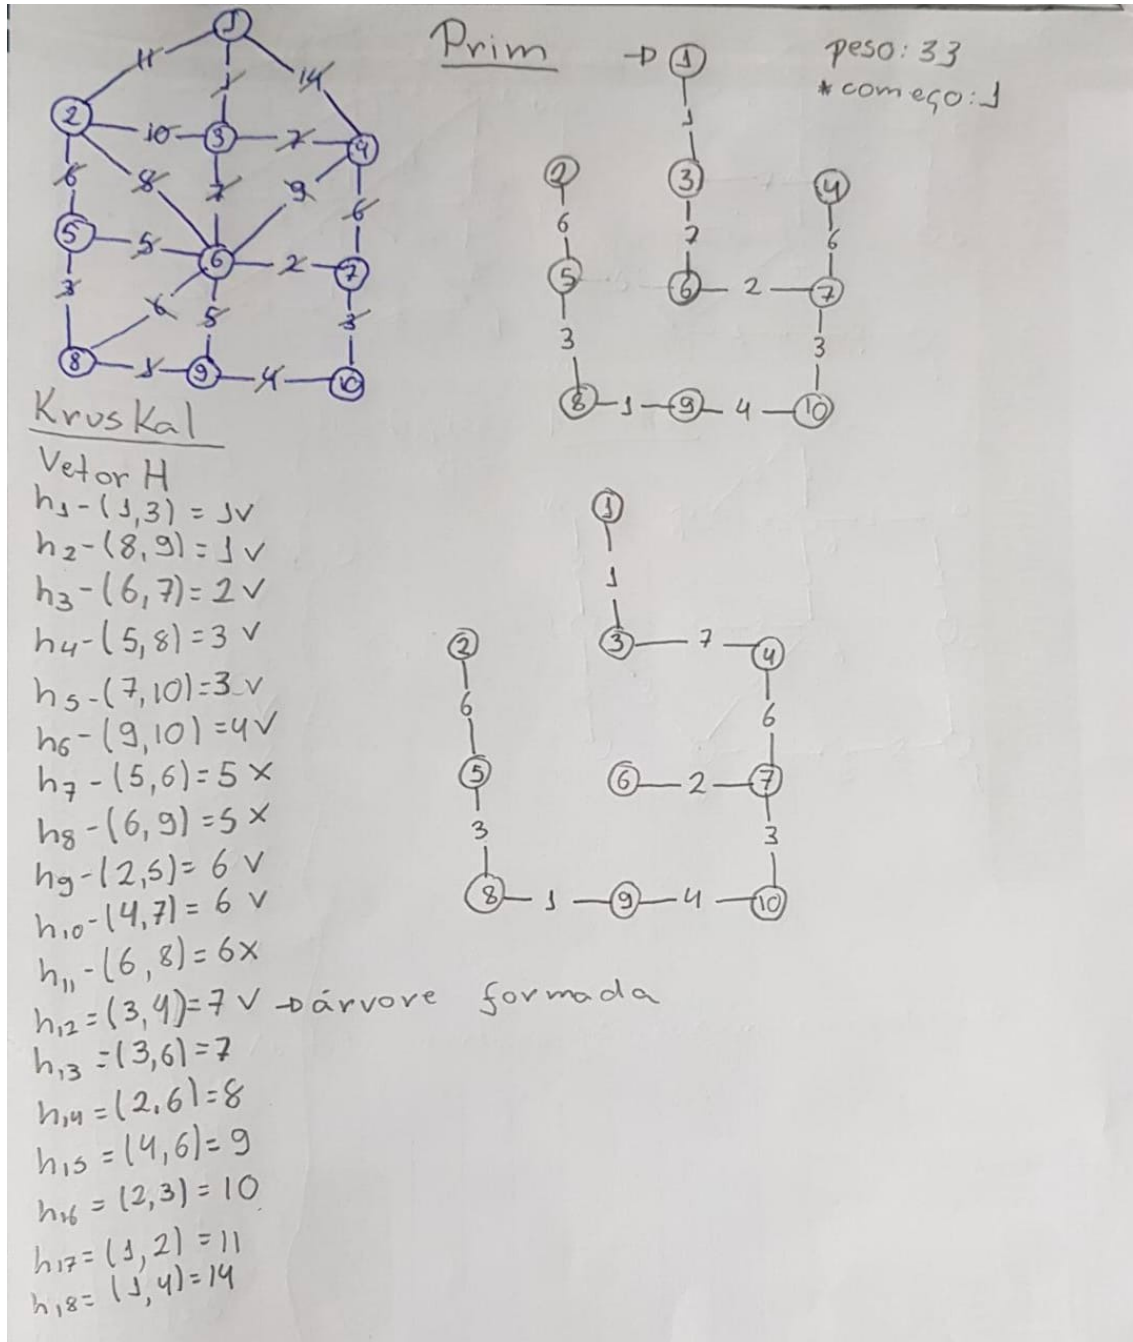 1
11 1 14
2 10 3 7 4
6 8 7 9 6
5 5 6 2 7
3 6 5 3
8 1 9 4 10
Prim → 1 peso: 33
* começo: 1
1
2 3 4
6 7 6
5 6 2 7
3 3
8 1 9 4 10
Kruskal
Vetor H
h1 - (1,3) = 1 v
h2 - (8,9) = 1 v
h3 - (6,7) = 2 v
h4 - (5,8) = 3 v
h5 - (7,10) = 3 v
h6 - (9,10) = 4 v
h7 - (5,6) = 5 x
h8 - (6,9) = 5 x
h9 - (2,5) = 6 v
h10 - (4,7) = 6 v
h11 - (6,8) = 6 x
h12 = (3,4) = 7 v → árvore formada
h13 = (3,6) = 7
h14 = (2,6) = 8
h15 = (4,6) = 9
h16 = (2,3) = 10
h17 = (1,2) = 11
h18 = (1,4) = 14
1
1
2 3 7 4
6 6
5 6 2 7
3 3
8 1 9 4 10